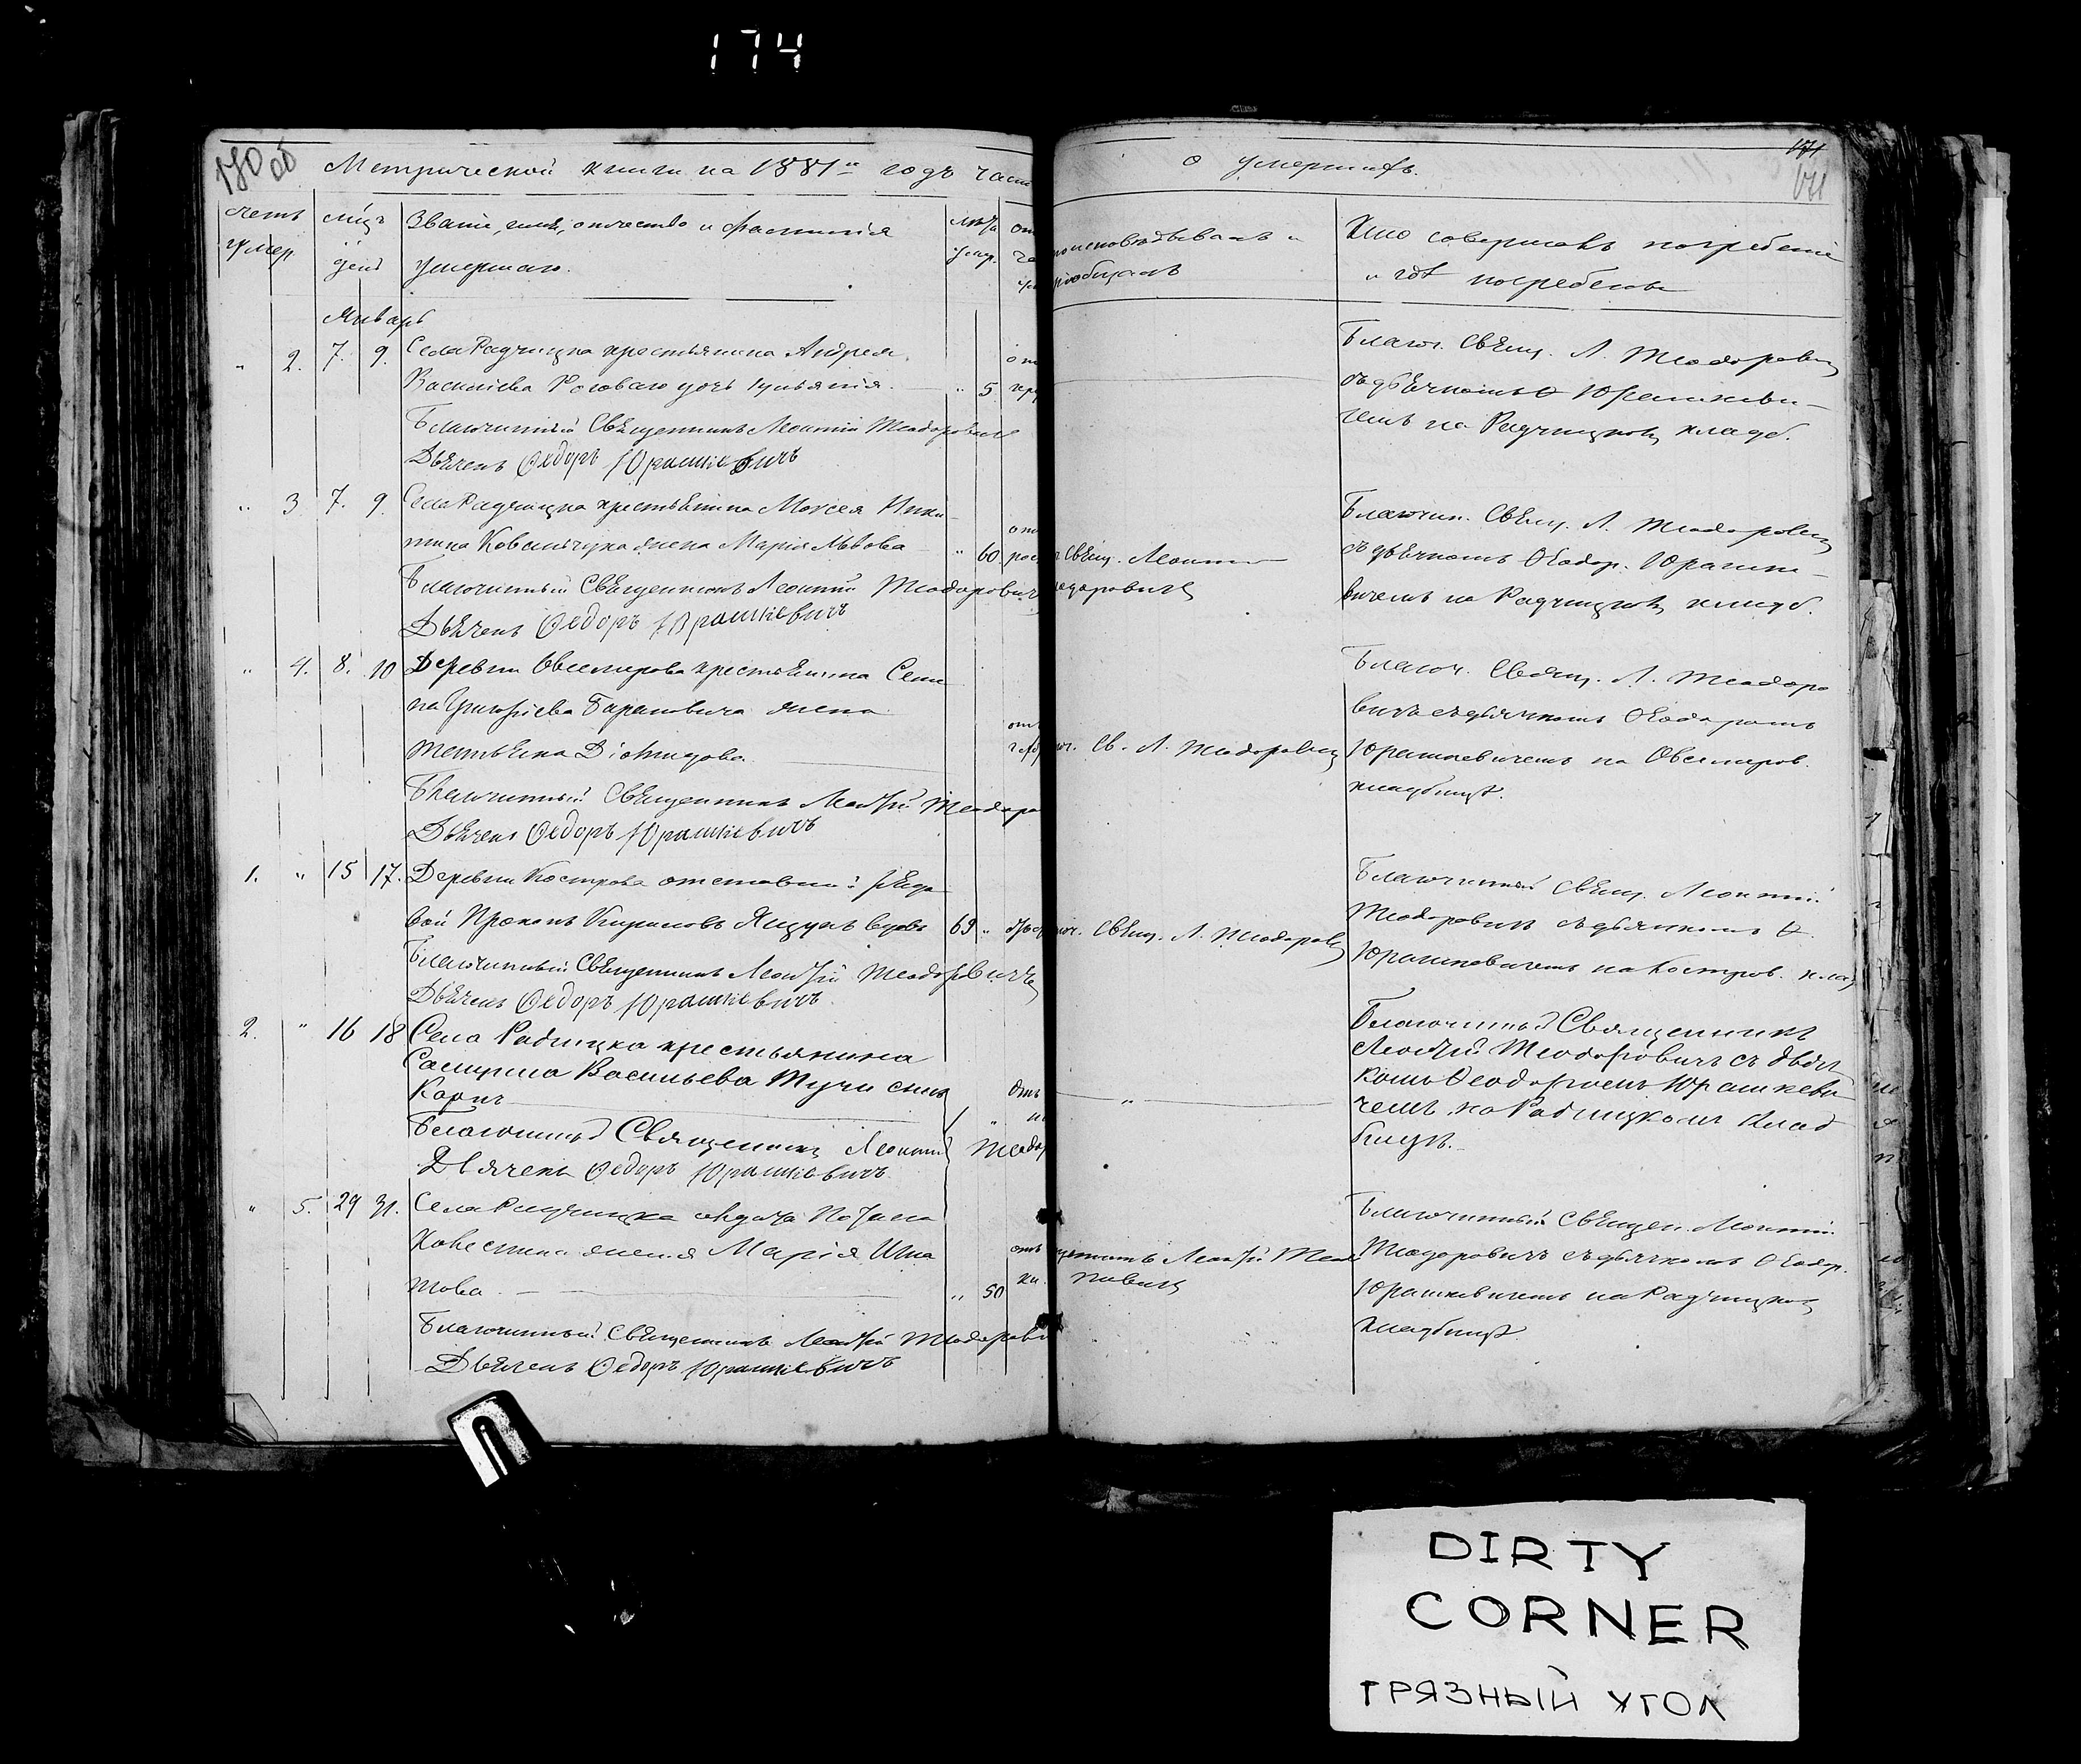 174
170 об
Метрической книги на 1881й годъ част
о умершихъ.
171
171
счетъ умер.
мѣц. день
Званіе, имя, отчество и фамилія
умершаго.
лѣта умер.
поисповѣдывалъ и
пріобщалъ
Кто совершалъ погребеніе
и гдѣ погребенъ
Январь
" 2. 7. 9. Села Радчицка крестьянина Андрея
Василіева дочь " 5
Благочинный Священникъ Леонтій Теодоровичъ
Дьячекъ Ѳедоръ Юрашкевичъ
Благоч. Свящ. Л. Теодорович
съ дьячкомъ Ѳ Юрашкеви-
чемъ на Радчицком кладб.
" 3 7. 9. Села Радчицка крестьянина Моисея Ники-
тина Ковальчука жена Марія Львова " 60.
Благочинный Священникъ Леонтій Теодоровичъ
Дьячекъ Ѳедоръ Юрашкевичъ
Свящ. Леонтій
еодоровичъ
Благочин. Свящ. Л. Теодорович
съ дьячкомъ Ѳеодор. Юрашке-
вичемъ на Радчицком кладб.
" 4. 8. 10 Деревни Овсемирова крестьянина Семе
на Григоріева Барановича жена
Татьяна
Благочинный Священникъ Леонтій Теодоро
Дьячекъ Ѳедоръ Юрашкевичъ
Св. Л. Теодорович
Благоч. Свящ. Л. Теодоро
вичъ съ дьячкомъ Ѳеодоромъ
Юрашкевичемъ на Овсемиров.
кладбищѣ.
1. " 15 17. Деревни Кострова отставной рядо
вой Прокопъ Кириловъ вдовъ 69 "
Благочинный Священникъ Леонтій Теодоровичъ
Дьячекъ Ѳедоръ Юрашкевичъ
Свящ. Л. Теодорович
Благочинный Свящ. Леонтій
Теодоровичъ съ дьячкомъ Ѳ.
Юрашкевичемъ на Костров. клад
2. " 16 18 Села Радчицка крестьянина
Василіева сынъ
Карпъ 1 "
Благочинный Священникъ Леонтій Теодор
Дьячекъ Ѳедоръ Юрашкевичъ
Благочинный Священникъ
Леонтій Теодоровичъ съ дьяч
комъ Ѳеодоромъ Юрашкеви
чемъ на Радчицкомъ клад
бищѣ.
" 5. 29 31. Села Радчицка
жена Марія Игна
това " 50
Благочинный Священникъ Леонтій Теодорови
Дьячекъ Ѳедоръ Юрашкевичъ
Леонтій Теодо
ровичъ
Благочинный Священ. Леонтій
Теодоровичъ съ дьячкомъ Ѳеодор.
Юрашкевичемъ на Радчицком
кладбищѣ
DIRTY
CORNER
ГРЯЗНЫЙ УГОЛ